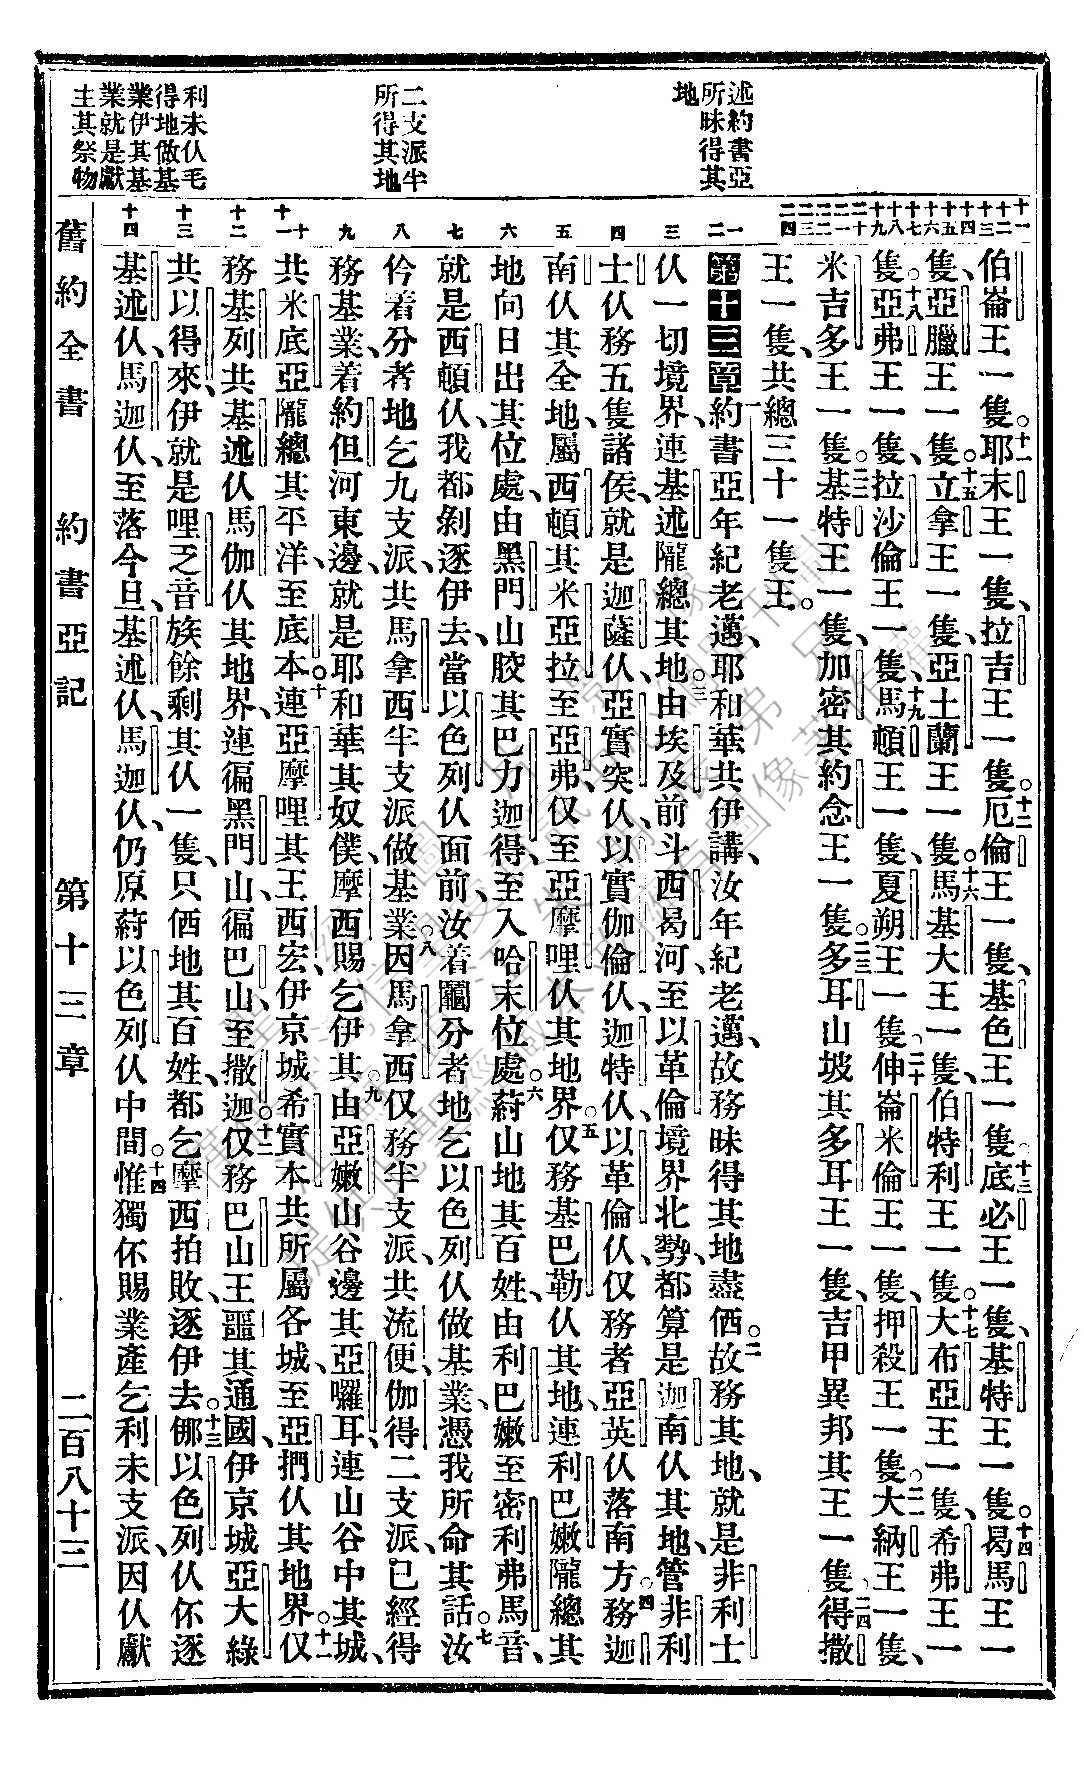 述約書亞
所昧得其
地
二支派半
所得其地
利未仈毛
得地做基
業伊其基
業就是獻
主其祭物
十一
十二
十三
十四
十五
十六
十七
十八
十九
二十
二一
二二
二三
二四
一
二
三
四
五
六
七
八
九
十
十一
十二
十三
十四
伯崙王一隻。十一耶末王一隻、拉吉王一隻。十二厄倫王一隻、基色王一隻。十三底必王一隻、基特王一隻。十四曷馬王一
隻、亞臘王一隻。十五立拿王一隻、亞土蘭王一隻。十六馬基大王一隻、伯特利王一隻。十七大布亞王一隻、希弗王一
隻。十八亞弗王一隻、拉沙倫王一隻。十九馬頓王一隻、夏朔王一隻。二十伸崙米倫王一隻、押殺王一隻。二一大納王一隻、
米吉多王一隻。二二基特王一隻、加密其約念王一隻。二三多耳山坡其多耳王一隻、吉甲異邦其王一隻。二四得撒
王一隻、共總三十一隻王。
第十三章一約書亞年紀老邁、耶和華共伊講、汝年紀老邁、故務昧得其地盡価。二故務其地、就是非利士
仈一切境界、連基述隴總其地。三由埃及前斗西曷河、至以革倫境界北勢、都算是迦南仈其地、管非利
士仈務五隻諸侯、就是迦薩仈、亞實突仈、以實伽倫仈、迦特仈、以革倫仈、仅務者亞英仈落南方。四務迦
南仈其全地、屬西頓其米亞拉、至亞弗、仅至亞摩哩仈其地界。五仅務基巴勒仈其地、連利巴嫩隴總其
地向日出其位處、由黑門山胶其巴力迦得、至入哈末位處。六蔚山地其百姓、由利巴嫩至密利弗馬音、
就是西頓仈、我都剝逐伊去、當以色列仈面前、汝着鬮分者地乞以色列仈做基業、憑我所命其話。七汝
伶着分者地乞九支派、共馬拿西半支派做基業。八因馬拿西仅務半支派、共流便、伽得二支派、已經得
務基業、着約但河東邊、就是耶和華其奴僕、摩西賜乞伊其。九由亞嫩山谷邊其亞囉耳、連山谷中其城、
共米底亞隴總其平洋、至底本。十連亞摩哩其王西宏、伊京城希實本、共所屬各城、至亞捫仈其地界。十一仅
務基列、共基述仈、馬伽仈其地界、連徧黑門山、徧巴山、至撒迦。十二仅務巴山王噩其通國、伊京城亞大綠
共以得來、伊就是哩乏音族餘剩其仈一隻、只価地其百姓、都乞摩西拍敗、逐伊去。十三㑚以色列仈伓逐
基述仈、馬迦仈、至落今旦、基述仈、馬迦仈、仍原蔚以色列仈中間。十四惟獨伓賜業產乞利未支派、因仈獻
舊約全書 約書亞記 第十三章 二百八十三